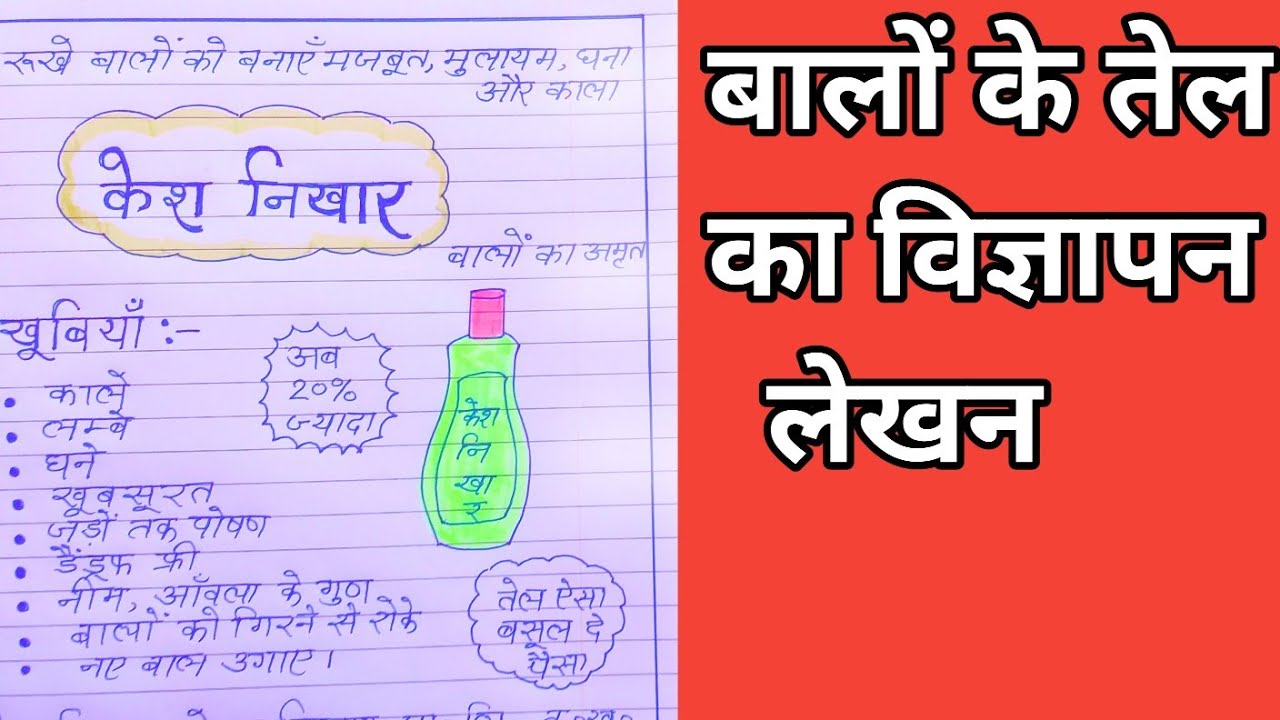 रूखे बालों को बनाएँ मजबूत, मुलायम, घना
और काला
केश निखार
बालों का अमृत
खूबियाँ :-
• काले
• लम्बे
• घने
• खूबसूरत
• जड़ों तक पोषण
• डैंड्रफ फ्री
• नीम, आँवला के गुण
• बालों को गिरने से रोके
• नए बाल उगाए।
अब
20%
ज्यादा
केश
नि
खा
र
तेल ऐसा
बसूल दे
पैसा
बालों के तेल
का विज्ञापन
लेखन